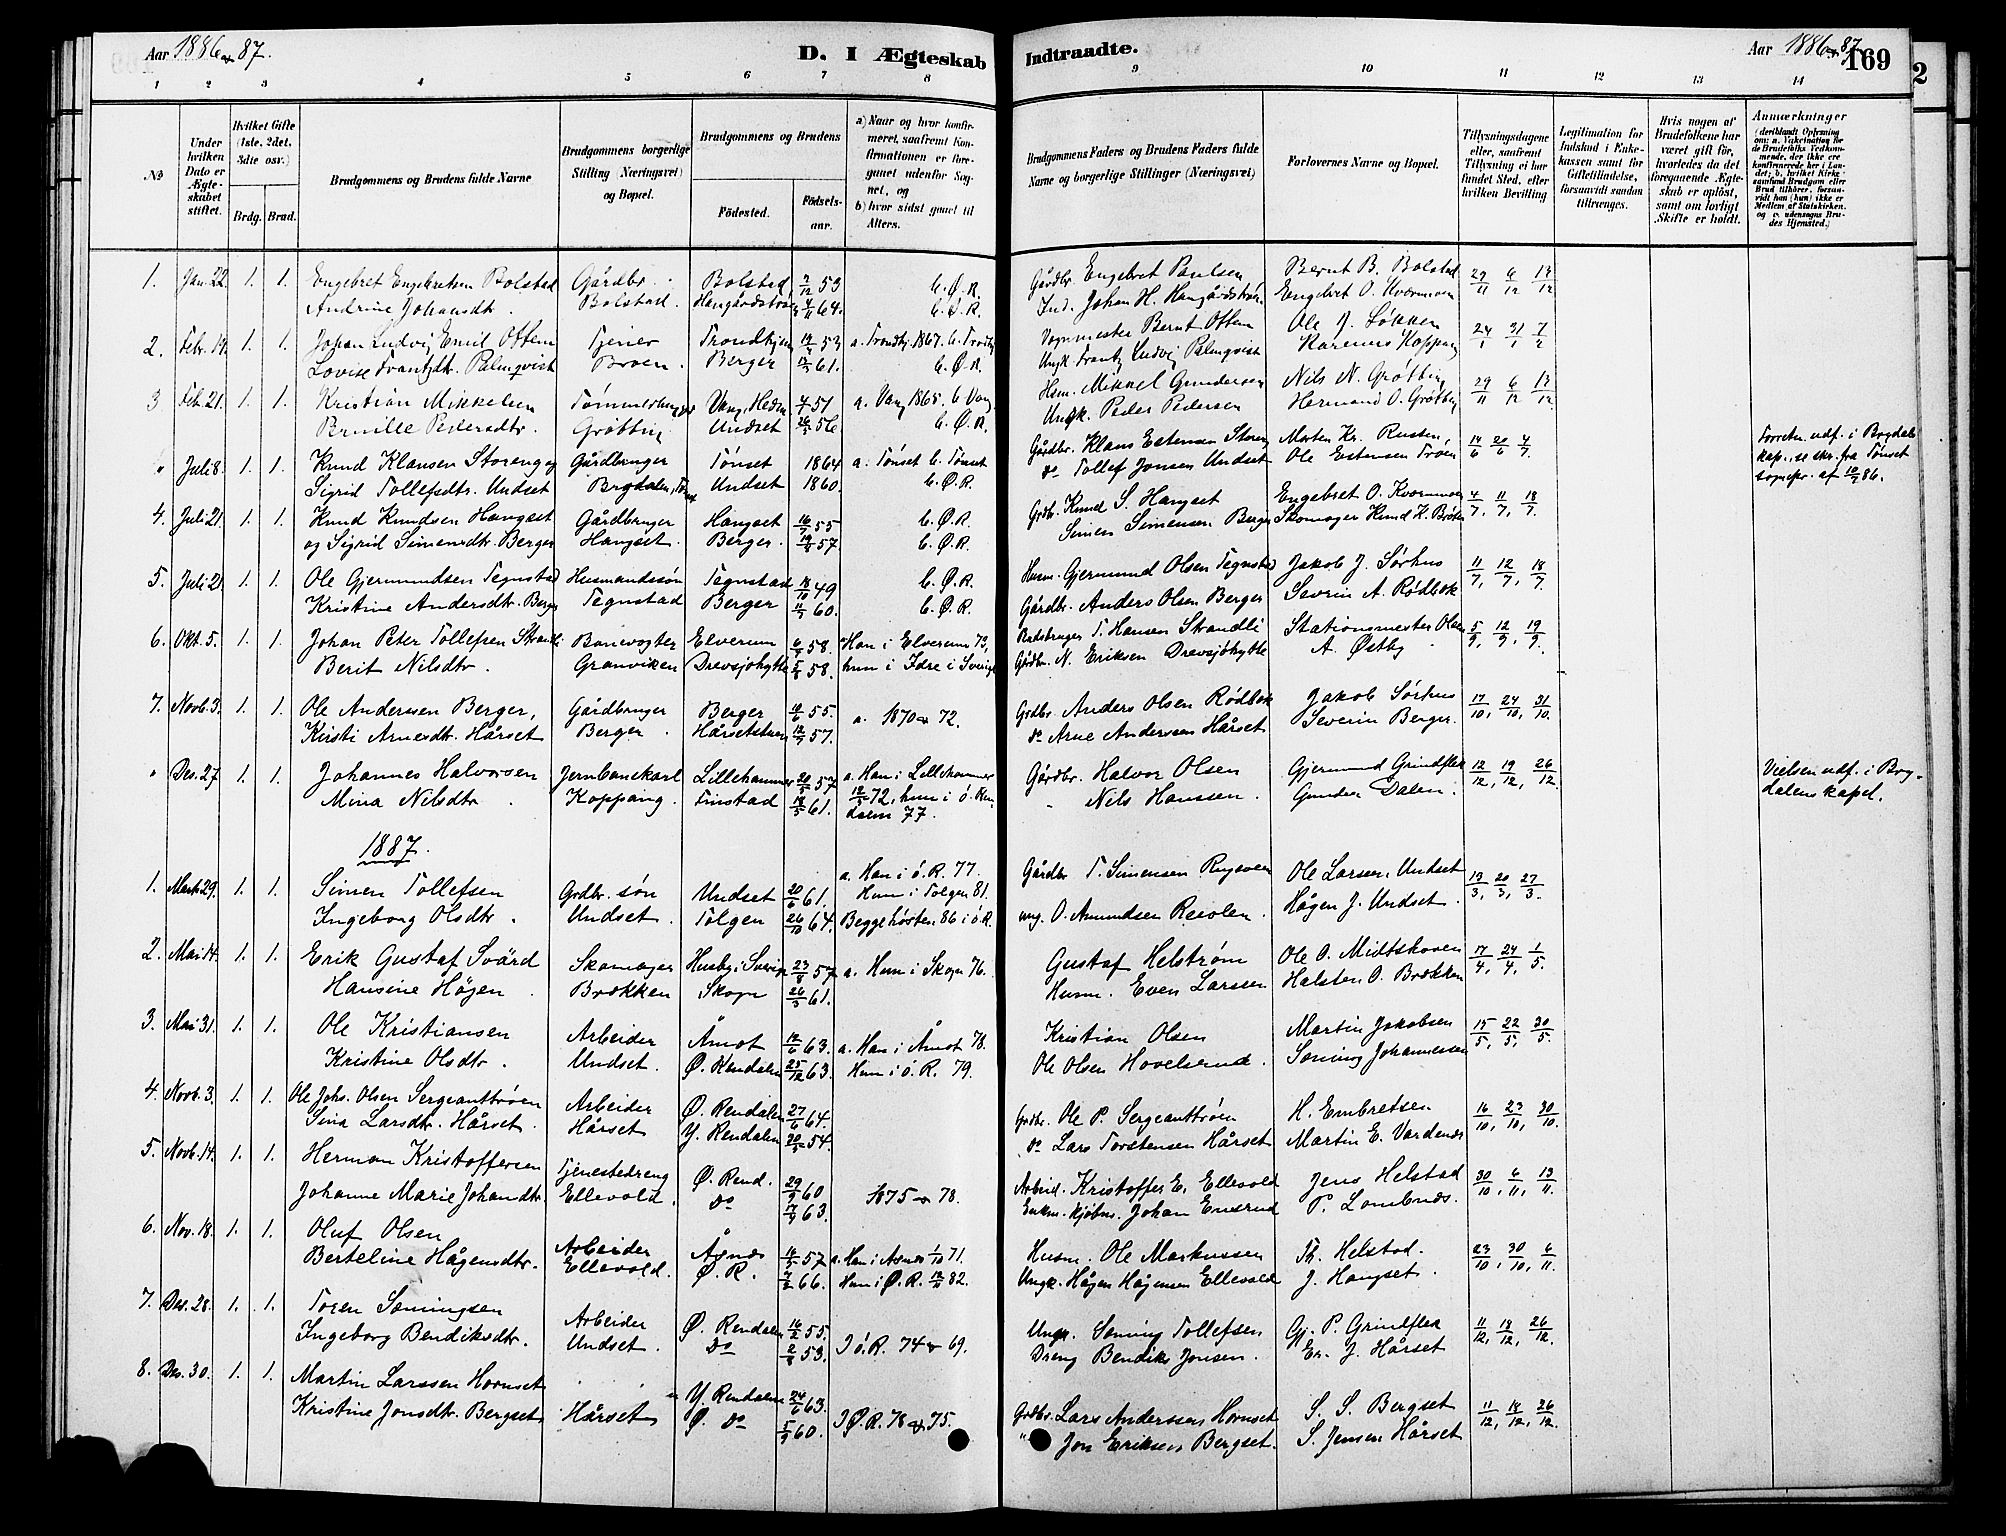 Aar 1886 & 87.
D. I Ægteskab
Indtraadte.
Aar 1886 & 87
169
2
1 2 3 4 5 6 7 8
9 10 11 12 13 14
№
Under hvilken Dato er Ægteskabet stiftet.
Hvilket Gifte (1ste, 2det, 3die osv.)
Brdg. Brud.
Brudgommens og Brudens fulde Navne
Brudgommens borgerlige Stilling (Næringsvei) og Bopæl.
Brudgommens og Brudens
Födested.
Födselsaar.
a) Naar og hvor konfirmeret, saafremt Konfirmationen er foregaaet udenfor Sognet, og
b) hvor sidst gaaet til Alters.
Brudgommens Faders og Brudens Faders fulde Navne og borgerlige Stillinger (Næringsvei)
Forlovernes Navne og Bopæl.
Tillysningsdagene eller, saafremt Tillysning ei har fundet Sted, efter hvilken Bevilling
Legitimation for Indskud i Enkekassen samt for Giftetilladelse, forsaavidt saadan tiltrænges.
Hvis nogen af Brudefolkene har været gift før, hvorledes da det foregaaende Ægteskab er opløst, samt om lovligt Skifte er holdt.
Anmærkninger
1. Jan. 22. 1. 1. Engebret Engebretsen Bolstad Gårdbr. Bolstad 2/12 53 b. Ø. R. Gårdbr. Engebret Paulsen Bernt B. Bolstad 29/11 6/12 13/12
Andrine Johansdtr. Bolstad. Hangårdstrøen 4/11 64. b. Ø. R. Ind. Johan H. Hangårdstrøen Engebret O. Kvernmoen
2. Febr. 14. 1. 1. Johan Ludvig Emil Offem Tjener Trondhjem 53 a. Trondhj. 1867. b. Trondhj. Vognmester Bernt Offem Ole J. Løkken 24/1 31/1 7/2
Lovise Frantzdtr. Palmqvist Broen. Berger 61. b. Ø. R. Ungk. Frantz Ludvig Palmqvist Karenus Koppang
3 Feb. 21. 1. 1. Kristian Mikkelsen Vang, Hedm. 51 a. Vang 1865. b. Vang. Hsm. Mikkel Gundersen Nils N. Grøtting 29/11 6/12 13/12
Pernille Pedersdtr. Grøtting Undset 56 b. Ø. R. Ungk. Peder Pedersen Hermand O. Grøtting
" Juli 8. 1. 1. Knud Klausen Storeng og Gårdbruger Tønset 1864 a. Tønset b. Tønset Gårdbr. Klaus Estensen Storeng Morten Kr. Rusten, 14/6 20/6 4/7 Forretn. udf. i Brydals
Sigrid Tollefsdtr. Undset Brydalen, Undset 1860. b. Ø. R. do Tollef Jonsen Undset Ole Estensen Troen kap. se skr. fra Tønset
sognepr. af 10/7 86.
4. Juli 21. 1. 1. Knud Knudsen Hangset Gårdbruger Hangset 55 b. Ø. R. Grdbr. Knud S. Hangset Engebret O. Kvernmoen 4/7, 11/7, 18/7
og Sigrid Simensdtr. Berger Hangset. Berger. 57. b. Ø. R. Simen Simensen Berger Skomager Knud K. Bråten
5. Juli 21. 1. 1. Ole Gjermundsen Tegnstad Husmandssøn Tegnstad 18/10 49 b. Ø. R. Husm. Gjermund Olsen Tegnstad Jakob J. Sørhus 11/7, 12/7, 18/7
Kristine Andersdtr. Berger Tegnstad Berger 60. b. Ø. R. Gårdbr. Anders Olsen Berger Severin A. Rødbok
6. Okt. 5. 1. 1. Johan Peter Tollefsen Strandli Banevogter Elverum 58. Han i Elverum 73, T. Hansen Strandli Stationsmester Olsen 5/9, 12/9, 19/9
Berit Nilsdtr. Granviken Drevsjøhytte 58. hun i Idre i Sverige Gårdbr. N. Eriksen Drevsjøhytte A. Østby
7. Novb. 3. 1. 1. Ole Anderssen Berger, Gårdbruger Berger 55. a. 1870 & 72. Grdbr. Anders Olsen Rødbok Jakob Sørhus 17/10, 24/10, 31/10
Kirsti Arnesdtr. Hårset Berger. Hårsetstuen 57. do Arne Anderssen Hårset Severin Berger.
" Des. 27 1. 1. Johannes Halvorsen Jernbanekarl Lillehammer 57 a. Han i Lillehammer Gårdbr. Halvor Olsen Gjermund Grindflek 12/12, 19/12, 26/12 Vielsen udf. i Bry-
Mina Nilsdtr. Koppang. Finstad 61. 72, hun i ö. Ren- Nils Hanssen. Gunder Dalen. dalens kapel.
dalen 77.
1887.
1. Marts 29. 1. 1. Simen Tollefsen Grdbr. søn Undset 20/6 61. a. Han i ö. R. 77. Gårdbr. T. Simensen Rugsveen Ole Larsen Undset 13/3, 20/3, 27/3.
Ingeborg Olsdtr. Undset. Tolgen 26/10 64. Hun i Tolgen 81. ung. O. Amundsen Reiolen. Hågen J. Undset.
Begge høsten 86 i ö. R.
2. Mai 14. 1. 1. Erik Gustaf Svärd Skomager Husby i Sverige 23/8 57 a. Hun i Skogn 76. Gustaf Helstrøm Ole O. Midtskoven 17/4, 24/4, 1/5.
Hansine Høgen. Brækken Skogn 26/3 61. Husm. Even Larssen Halsten O. Brækken
3. Mai 31. 1. 1. Ole Kristiansen Arbeider Åmot 12/6 63. a. Han i Åmot 78. Kristian Olsen Martin Jakobsen 15/5, 22/5, 30/5.
Kristine Olsdtr. Undset. Ø. Rendalen 25/12 63. Hun i ö. R. 79. Ole Olsen Hovelsrud Søming Johannessen
4. Novb. 3. 1. 1. Ole Johs. Olsen Sergeanttrøen Arbeider Ø. Rendalen 27/6 64. Grdbr. Ole P. Sergeanttrøen H. Embretsen 16/10, 23/10, 30/10.
Sina Larsdtr. Hårset. Hårset Y. Rendalen 20/5 54. do Lars Torstensen Hårset Martin E. Vardenæs
5. Novb. 14. 1. 1. Herman Kristoffersen Tjenestedreng Ø. Rend. 29/9 60 1875 & 78. Arbeid. Kristoffer E. Ellevold Jens Helstad 30/10, 6/11, 13/11.
Johanne Marie Johandtr. Ellevold. do 63. Enkm. kjøbm. Johan Ensrud P. Lombnæs.
6. Nov. 18. 1. 1. Oluf Olsen Arbeider Åsnes 57 a. Han i Åsnes 1/10 71. Husm. Ole Markussen Th. Helstad. 23/10, 30/10, 6/11.
Berteline Hågensdtr. Ellevold. Ø. R. 66. Hun i Ø. R. 82. Ungk. Hågen Hågensen Ellevold J. Hangset.
7. Des. 28. 1. 1. Toren Sømingsen Arbeider Ø. Rendalen 16/2 55. I ö. R. 74 & 69. Ungk. Søming Tollefsen Gj. P. Grindflek 11/12, 18/12, 26/12.
Ingeborg Bendiksdtr. Undset. Do 2/8 53. Dreng Bendiks Jonsen. Er. J. Hårset
8. Des. 30. 1. 1. Martin Larssen Hornset " Y. Rendalen 24/6 63. I Ø. R. 78 & 75. Grdbr. Lars Anderssen Hornset S. S. Bergset 11/12, 18/12, 26/12.
Kristine Jonsdtr. Bergset Hårset Ø. do 5/9 60. " Jon Eriksen Bergset. S. Jensen Hårset